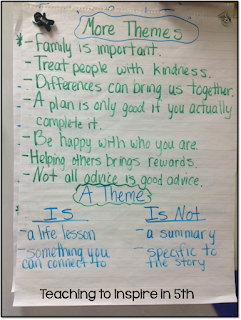 More Themes
-Family is important.
-Treat people with kindness.
-Differences can bring us together.
-A plan is only good if you actually
complete it.
-Be happy with who you are.
-Helping others brings rewards.
-Not all advice is good advice.
A Theme
Is
-a life lesson
-something you
can connect to
Is Not
-a summary
-specific to
the story
Teaching to Inspire in 5th